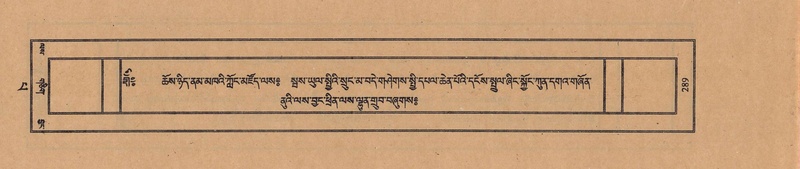 ཆོས་ཉིད་ནམ་མཁའི་ཀློང་མཛོད་ལས༔ སྦས་ཡུལ་སྤྱིའི་སྲུང་མ་བདེ་གཤེགས་སྤྱི་དཔལ་ཆེན་པོའི་དངོས་སྤྲུལ་ཞིང་སྐྱོང་ཀུན་དགའ་གཞོན
ནུའི་ལས་བྱང་ཕྲིན་ལས་ལྷུན་གྲུབ་བཞུགས༔
289